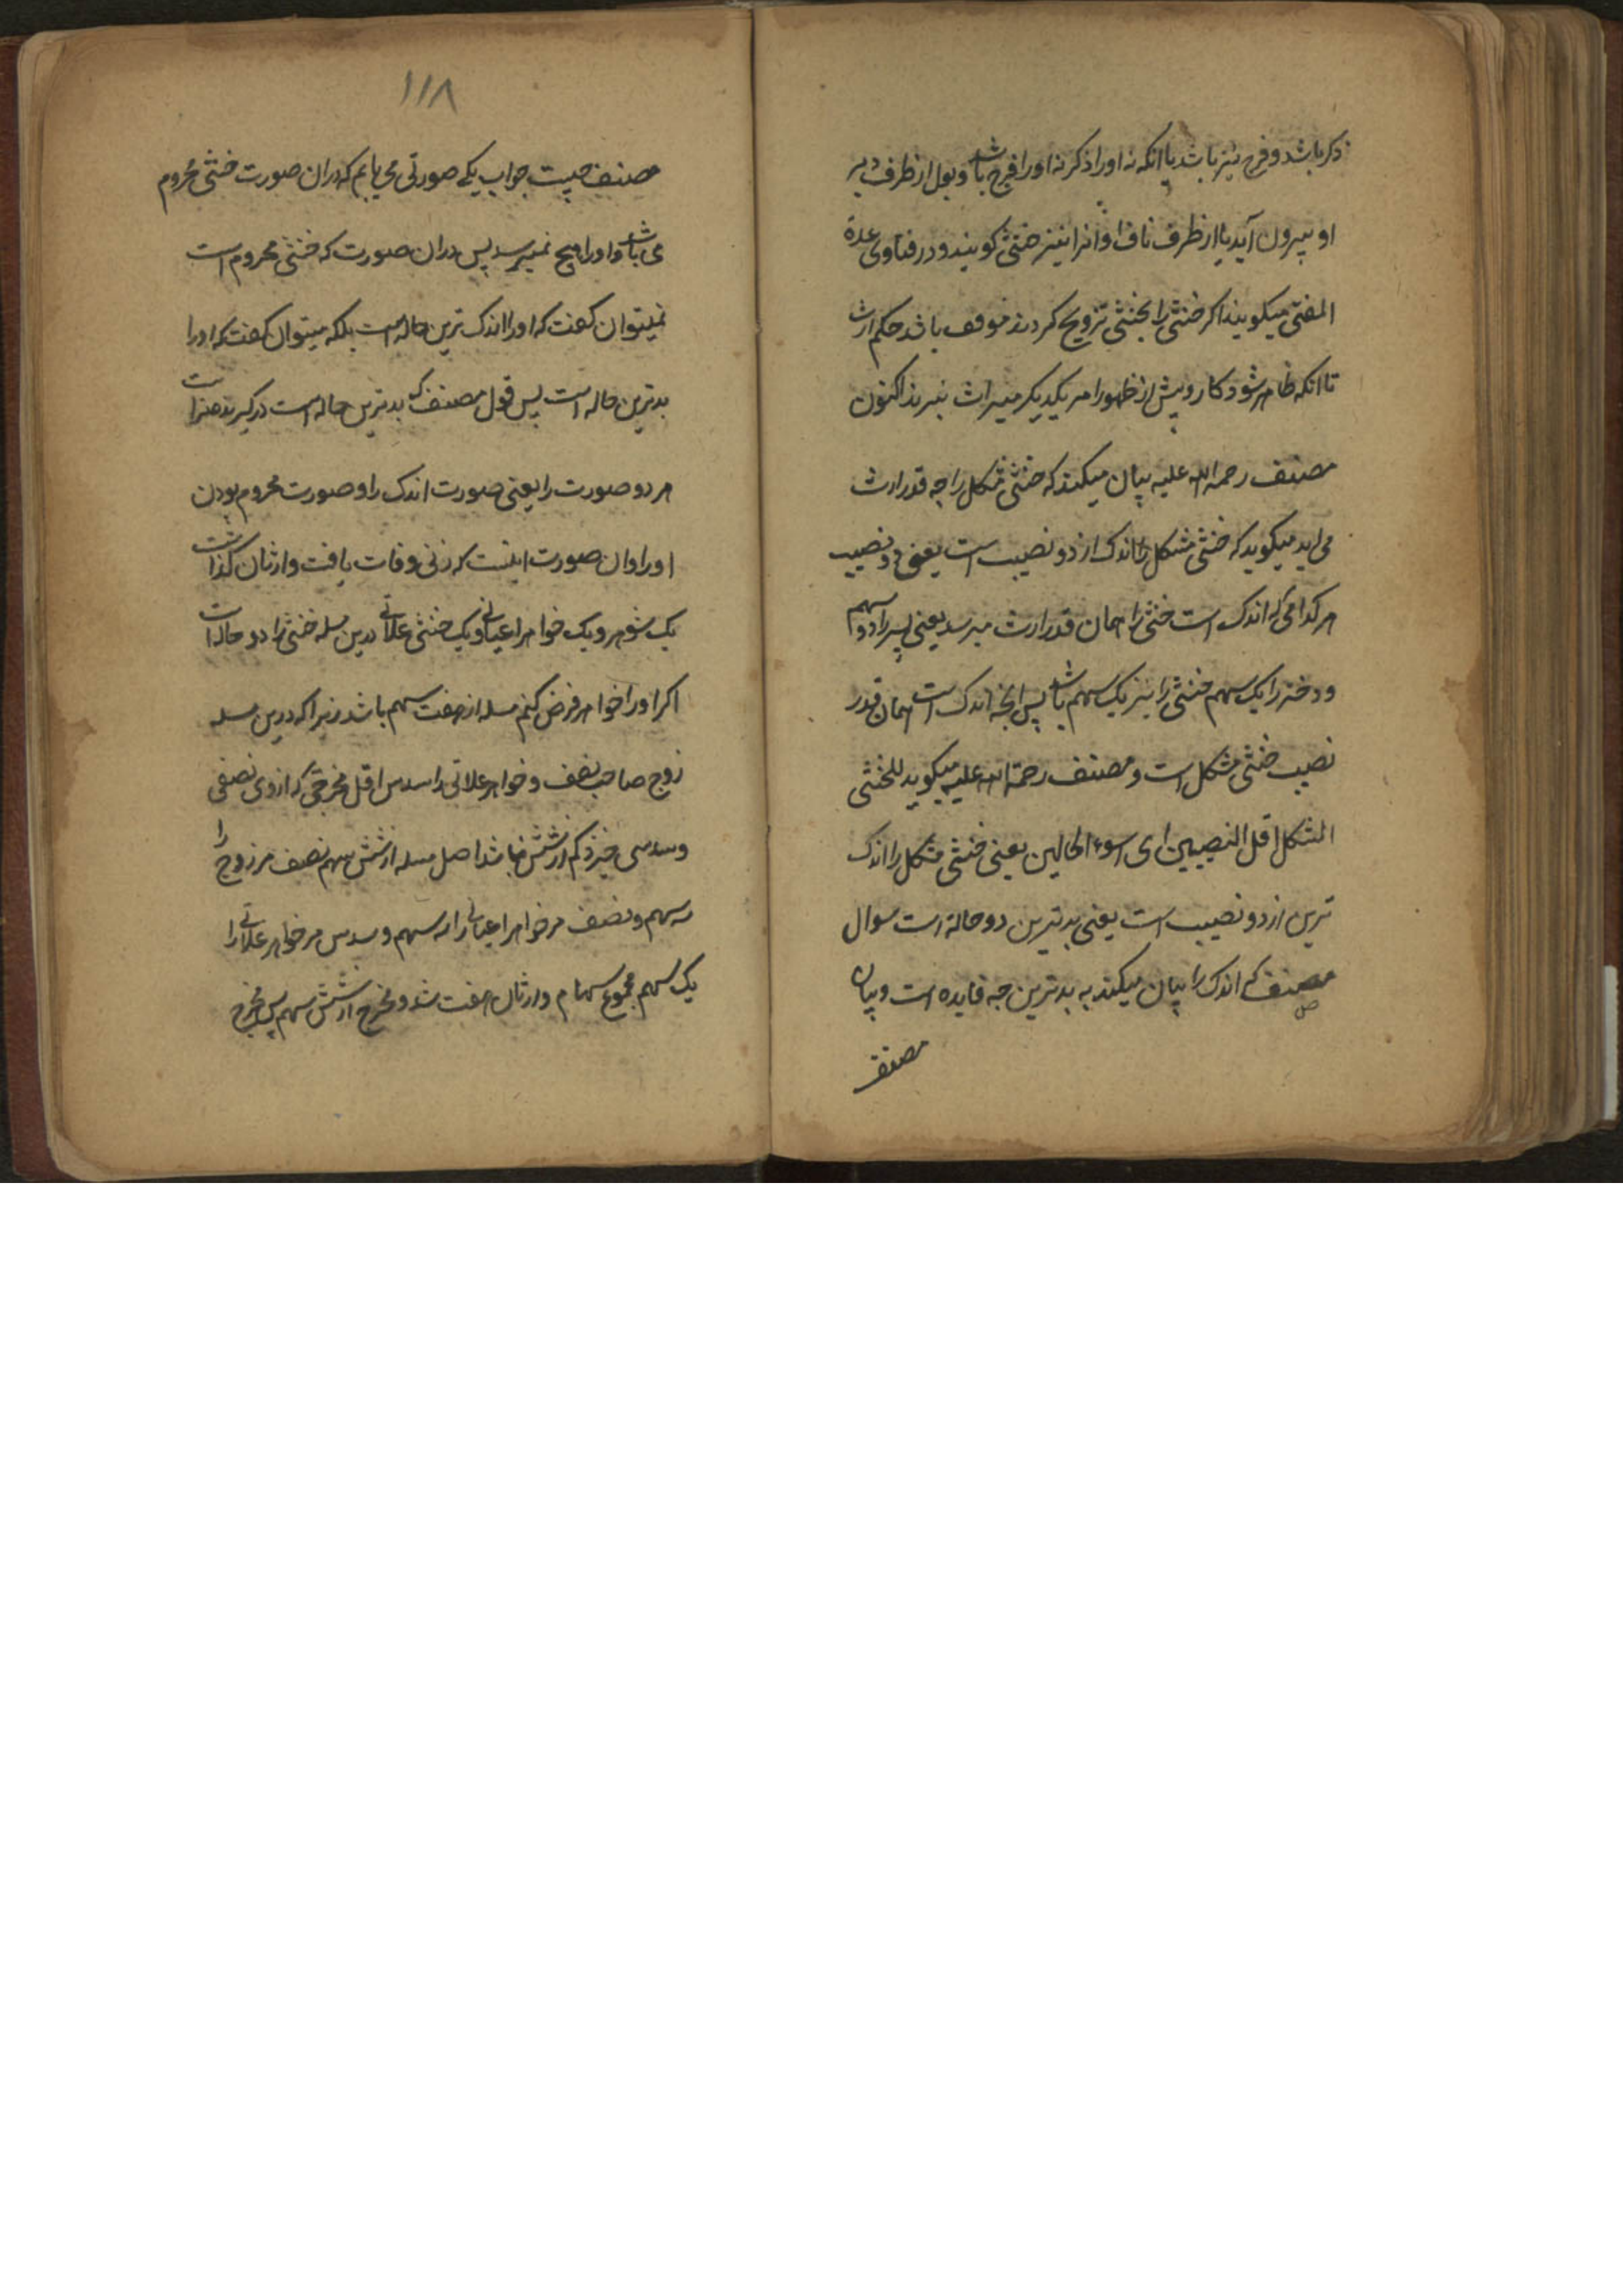 ذکر باشد و فرج نیز باشد یا انکه نه اورا ذکر نه اورا فرج باشد و بول از طرف دبر
او بیرون آید یا از طرف ناف او انرا نیز خنثی کویند و در فتاوی عدة
المفتی میکویند اکر خنثی را بخنثی تزویج کردند موقف باشد حکم ارث
تا انکه ظاهر شود کار و پیش از ظهور امر یکدیکر میراث نبرند اکنون
مصنف رحمه الله علیه بیان میکند که خنثی مشکل را چه قدر ارث
می اید میکوید که خنثی مشکل را اندک از دو نصیب است یعنی دو نصیب
هر کدامی که اندک است خنثی را همان قدر ارث میرسد یعنی پسر را دو سهم
و دختر را یک سهم خنثی را نیز یک سهم باشد پس انچه اندک است همان قدر
نصیب خنثی مشکل است و مصنف رحمة الله علیه میکوید للخنثی
المشکل اقل النصیبین ای اسوء الحالین یعنی خنثی مشکل را اندک
ترین از دو نصیب است یعنی بدترین دو حالة است سوال
مصنف که اندک را بیان میکند به بدترین چه فایده است و بیان
مصنف
۱۱۸
مصنف چیست جواب یکے صورتی می یابم که دران صورت خنثی محروم
می باشد و اورا هیچ نمیرسد پس دران صورت که خنثی محروم است
نمیتوان کفت که اورا اندک ترین حاله است بلکه میتوان کفت که اورا
بدترین حاله است پس قول مصنف که بدترین حاله است درکیرنده است
هر دو صورت را یعنی صورت اندک را و صورت محروم بودن
اورا و ان صورت اینست که زنی وفات یافت وارثان کذاشت
یک شوهر و یک خواهر اعیانی و یک خنثی علاتی درین مسله خنثی را دو حاله است
اکر اورا خواهر فرض کنم مسله از هفت سهم باشد زیرا که درین مسله
زوج صاحب نصف و خواهر علاتی را سدس اقل مخرجی که ازوی نصفی
و سدسی خیزد کم از شش نباشد اصل مسله از شش سهم نصف مر زوج را
سه سهم و نصف مر خواهر اعیانی را سه سهم و سدس مر خواهر علاتی را
یک سهم مجموع سهام وارثان هفت شد و مخرج از شش سهم پس مخرج